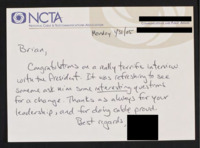 NCTA
Monday 9/26/05
Brian,
Congratulations on a really terrific interview
with the President. It was refreshing to see
someone ask him some interesting questions
for a change. Thanks as always for your
leadership, and for doing cable proud.
Best regards,